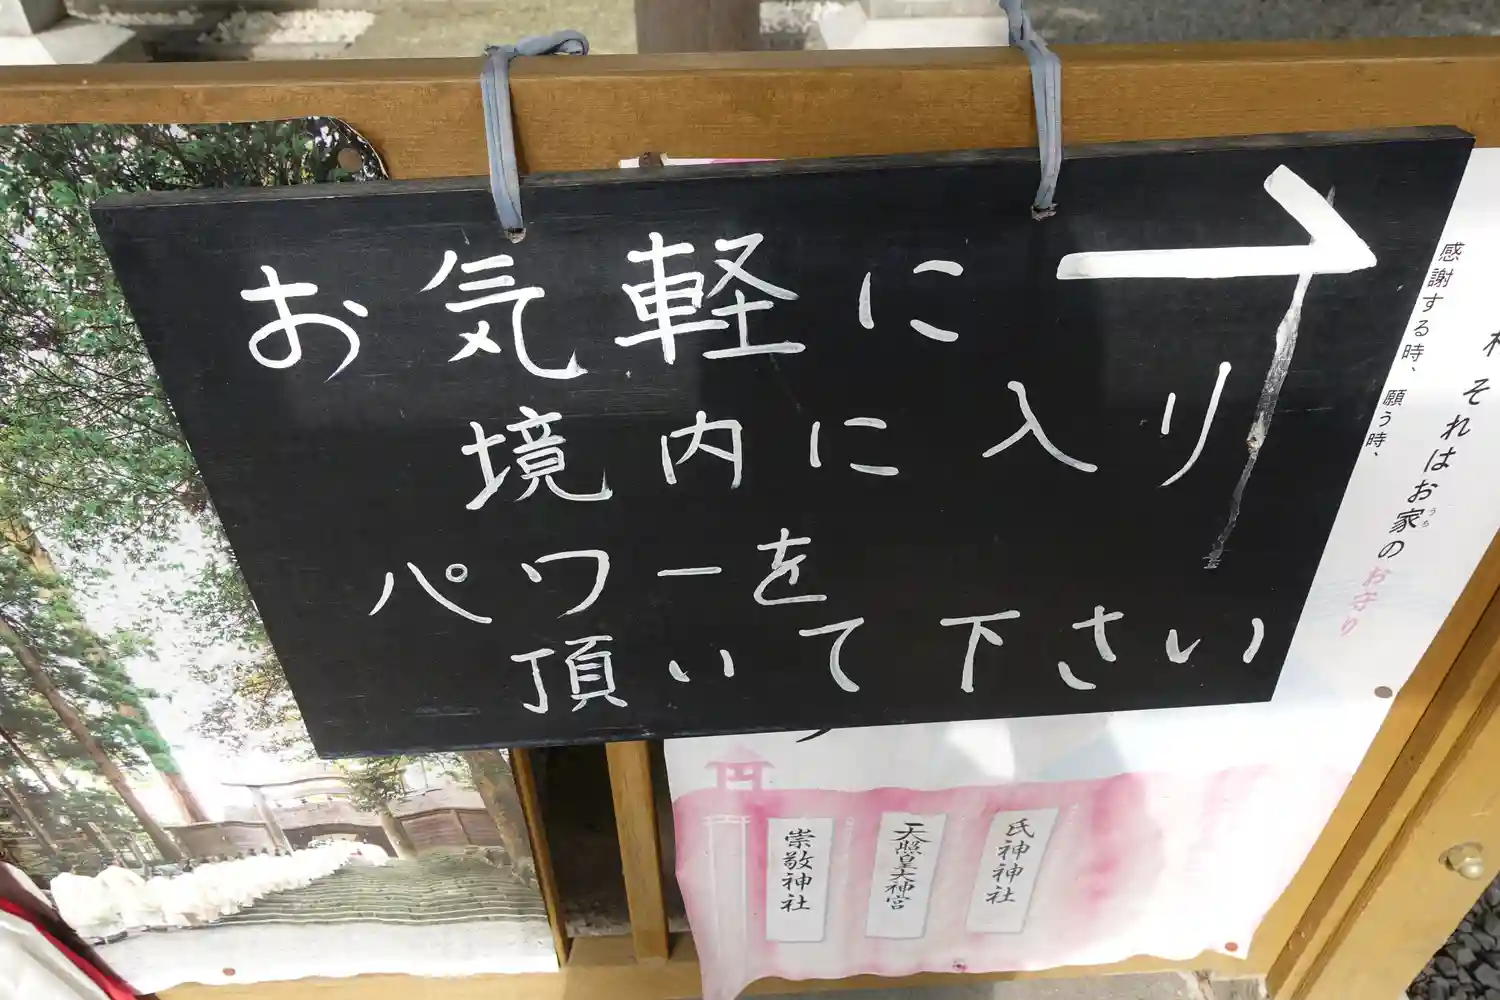 お気軽に
境内に入り
パワーを
頂いて下さい
感謝する時、願う時、
それはお家のお守り
うち
氏神神社
天照皇大神宮
崇敬神社